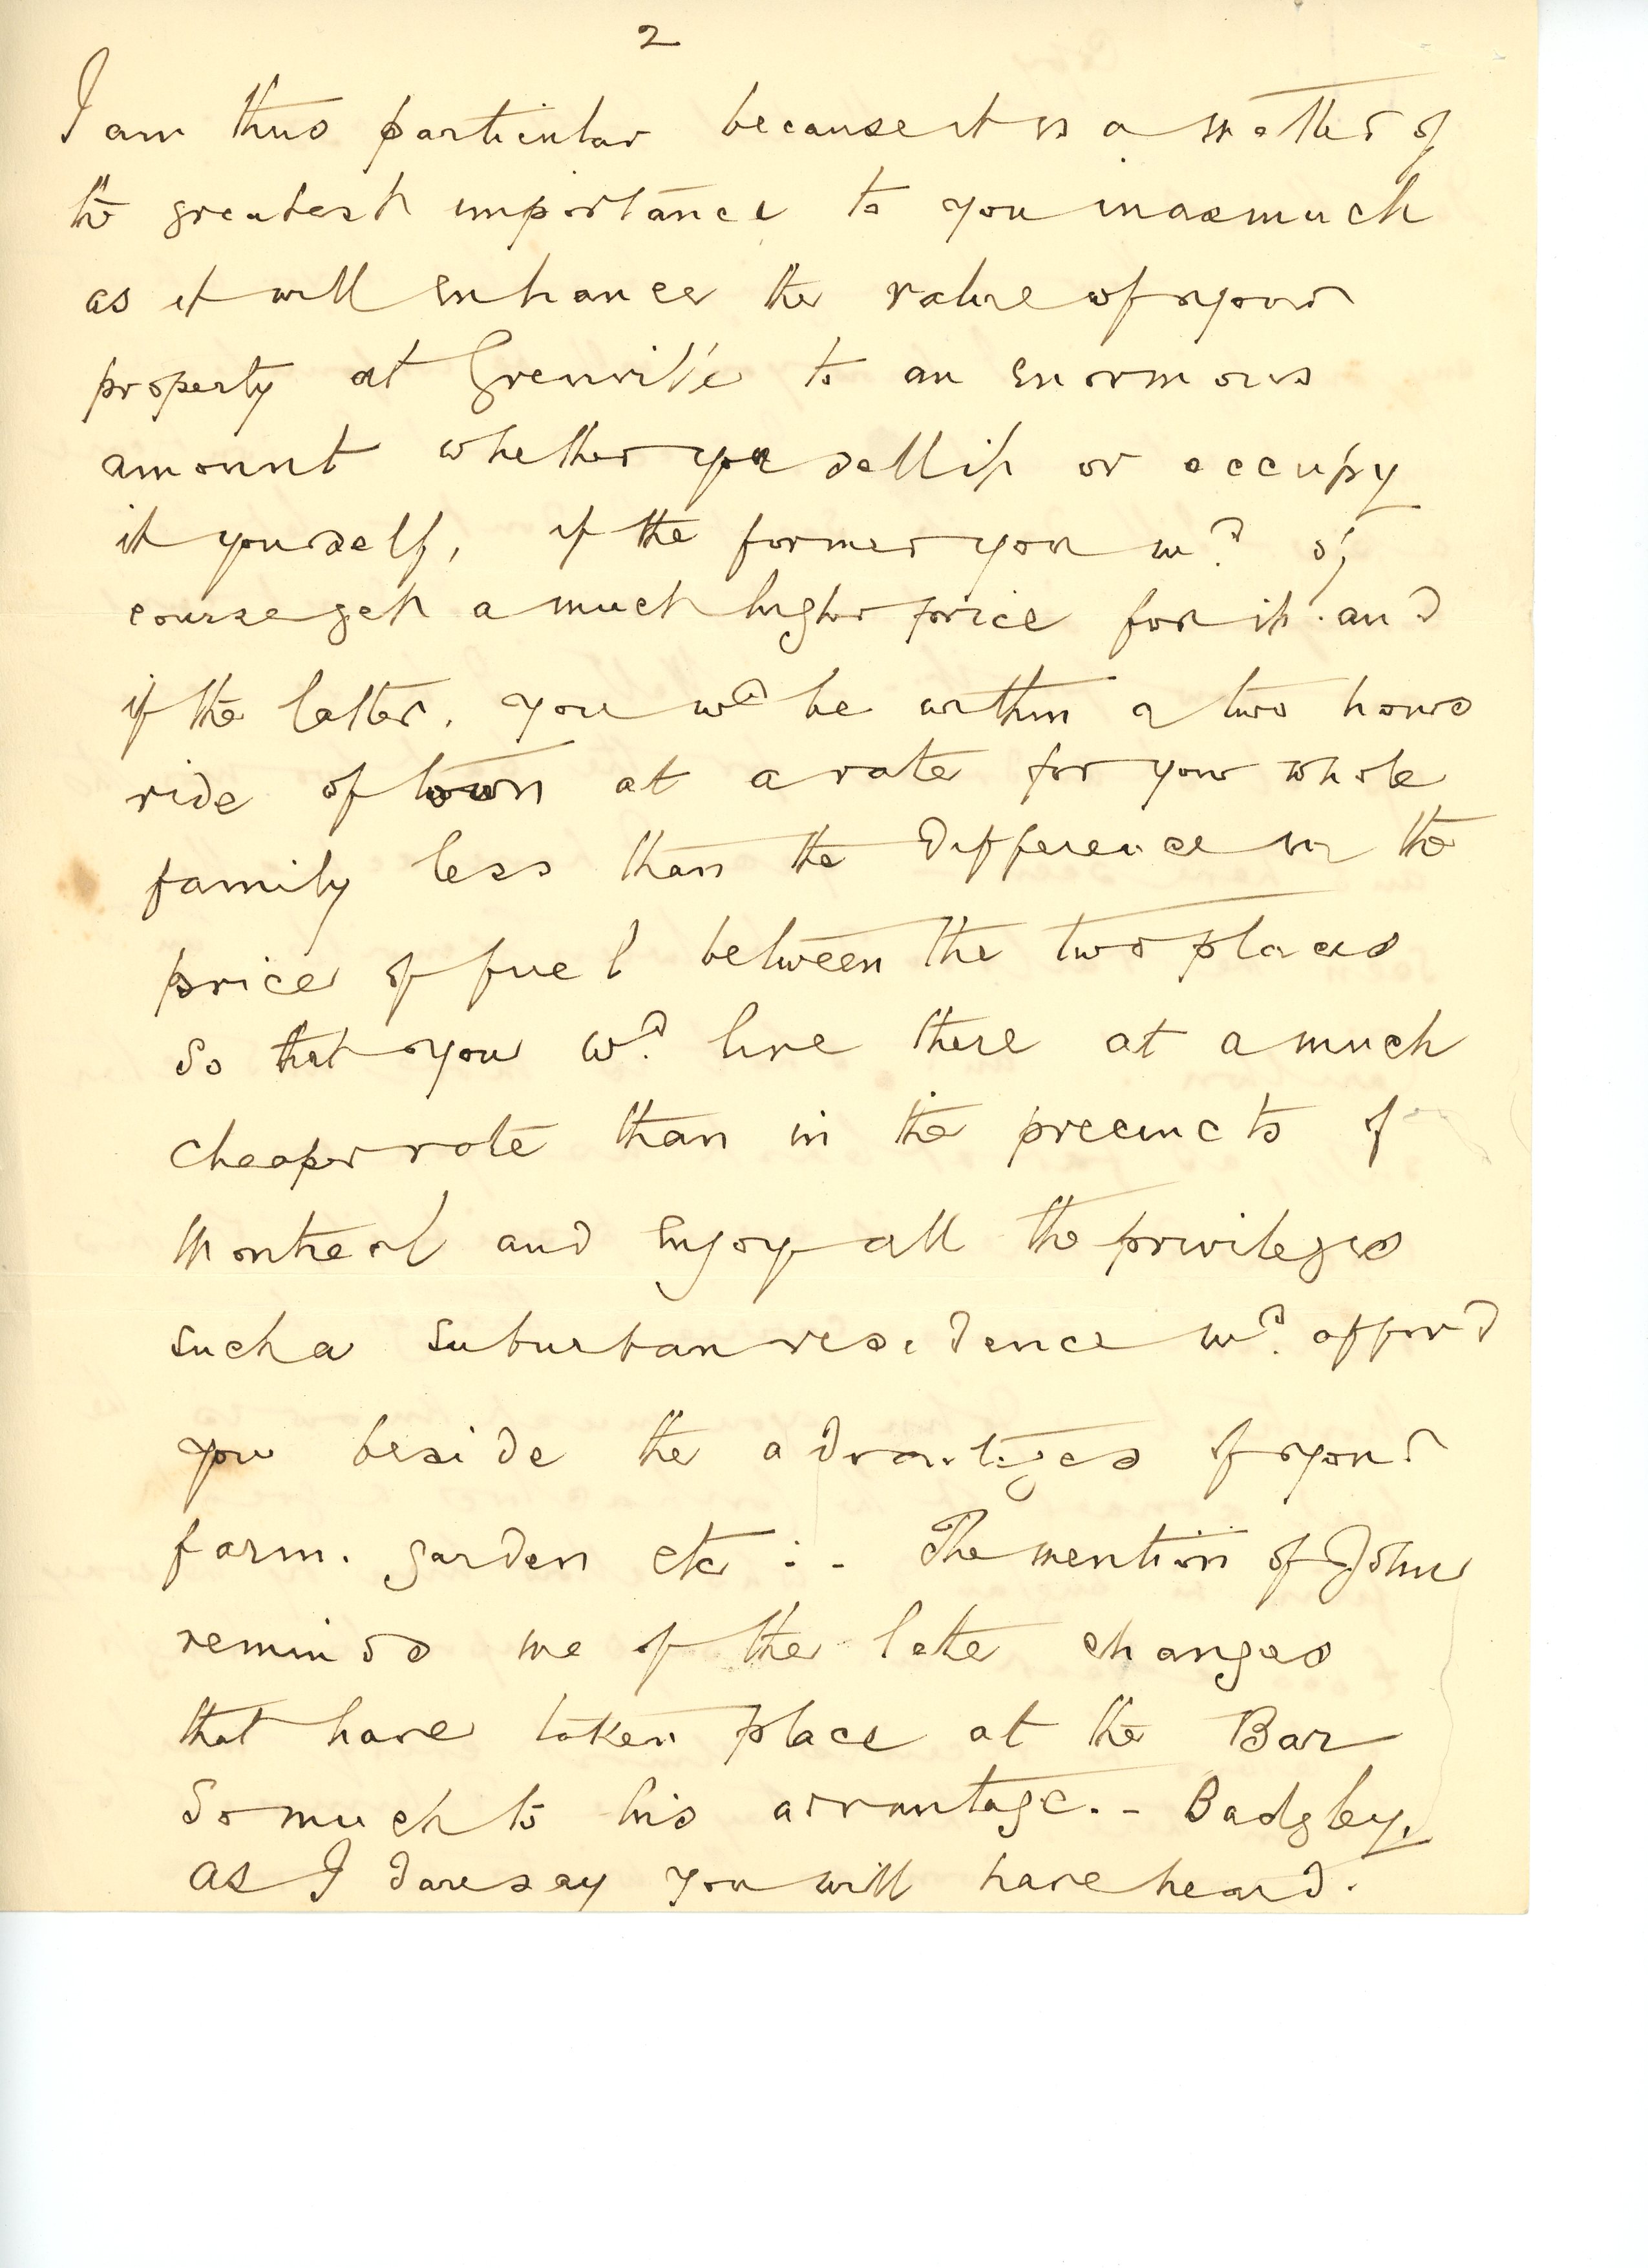 2
I am thus particular because it is a matter of
the greatest importance to you inasmuch
as it will enhance the value of your
property at Grenville to an enormous
amount whether you sell it or occupy
it yourself, if the former you wd. of
course get a much higher price for it. and
if the latter. you wd be within a two hours
ride of town at a rate for your whole
family less than the difference in the
price of fuel between the two places
So that you wd. live there at a much
cheaper rate than in the precincts of
Montreal and enjoy all the privileges
such a suburban residence wd. afford
you beside the advantages of your
farm. garden etc :- The mention of John
reminds me of the late changes
that have taken place at the Bar
So much to his advantage. - Badgley,
as I dare say you will have heard.